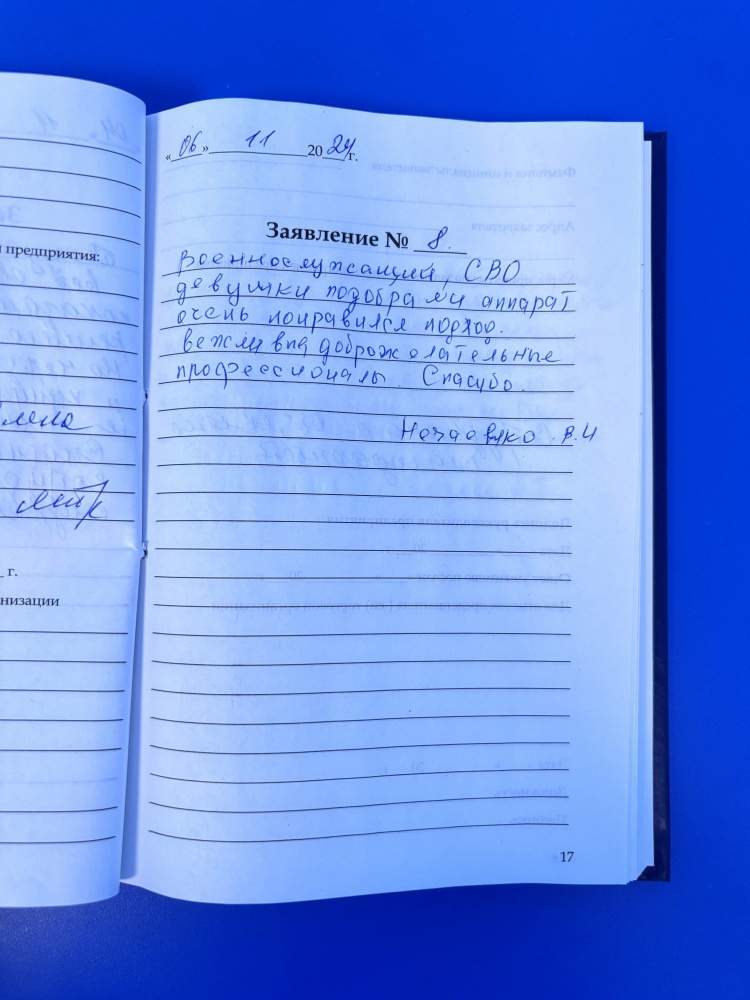 « 06 » 11 2024 г.
Заявление № 8.
и предприятия:
военнослужащий, СВО
девушки подобрали аппарат
очень понравился подход.
вежливпа доброжелательные
профессионалы. Спасибо.
В.И
г.
низации
17